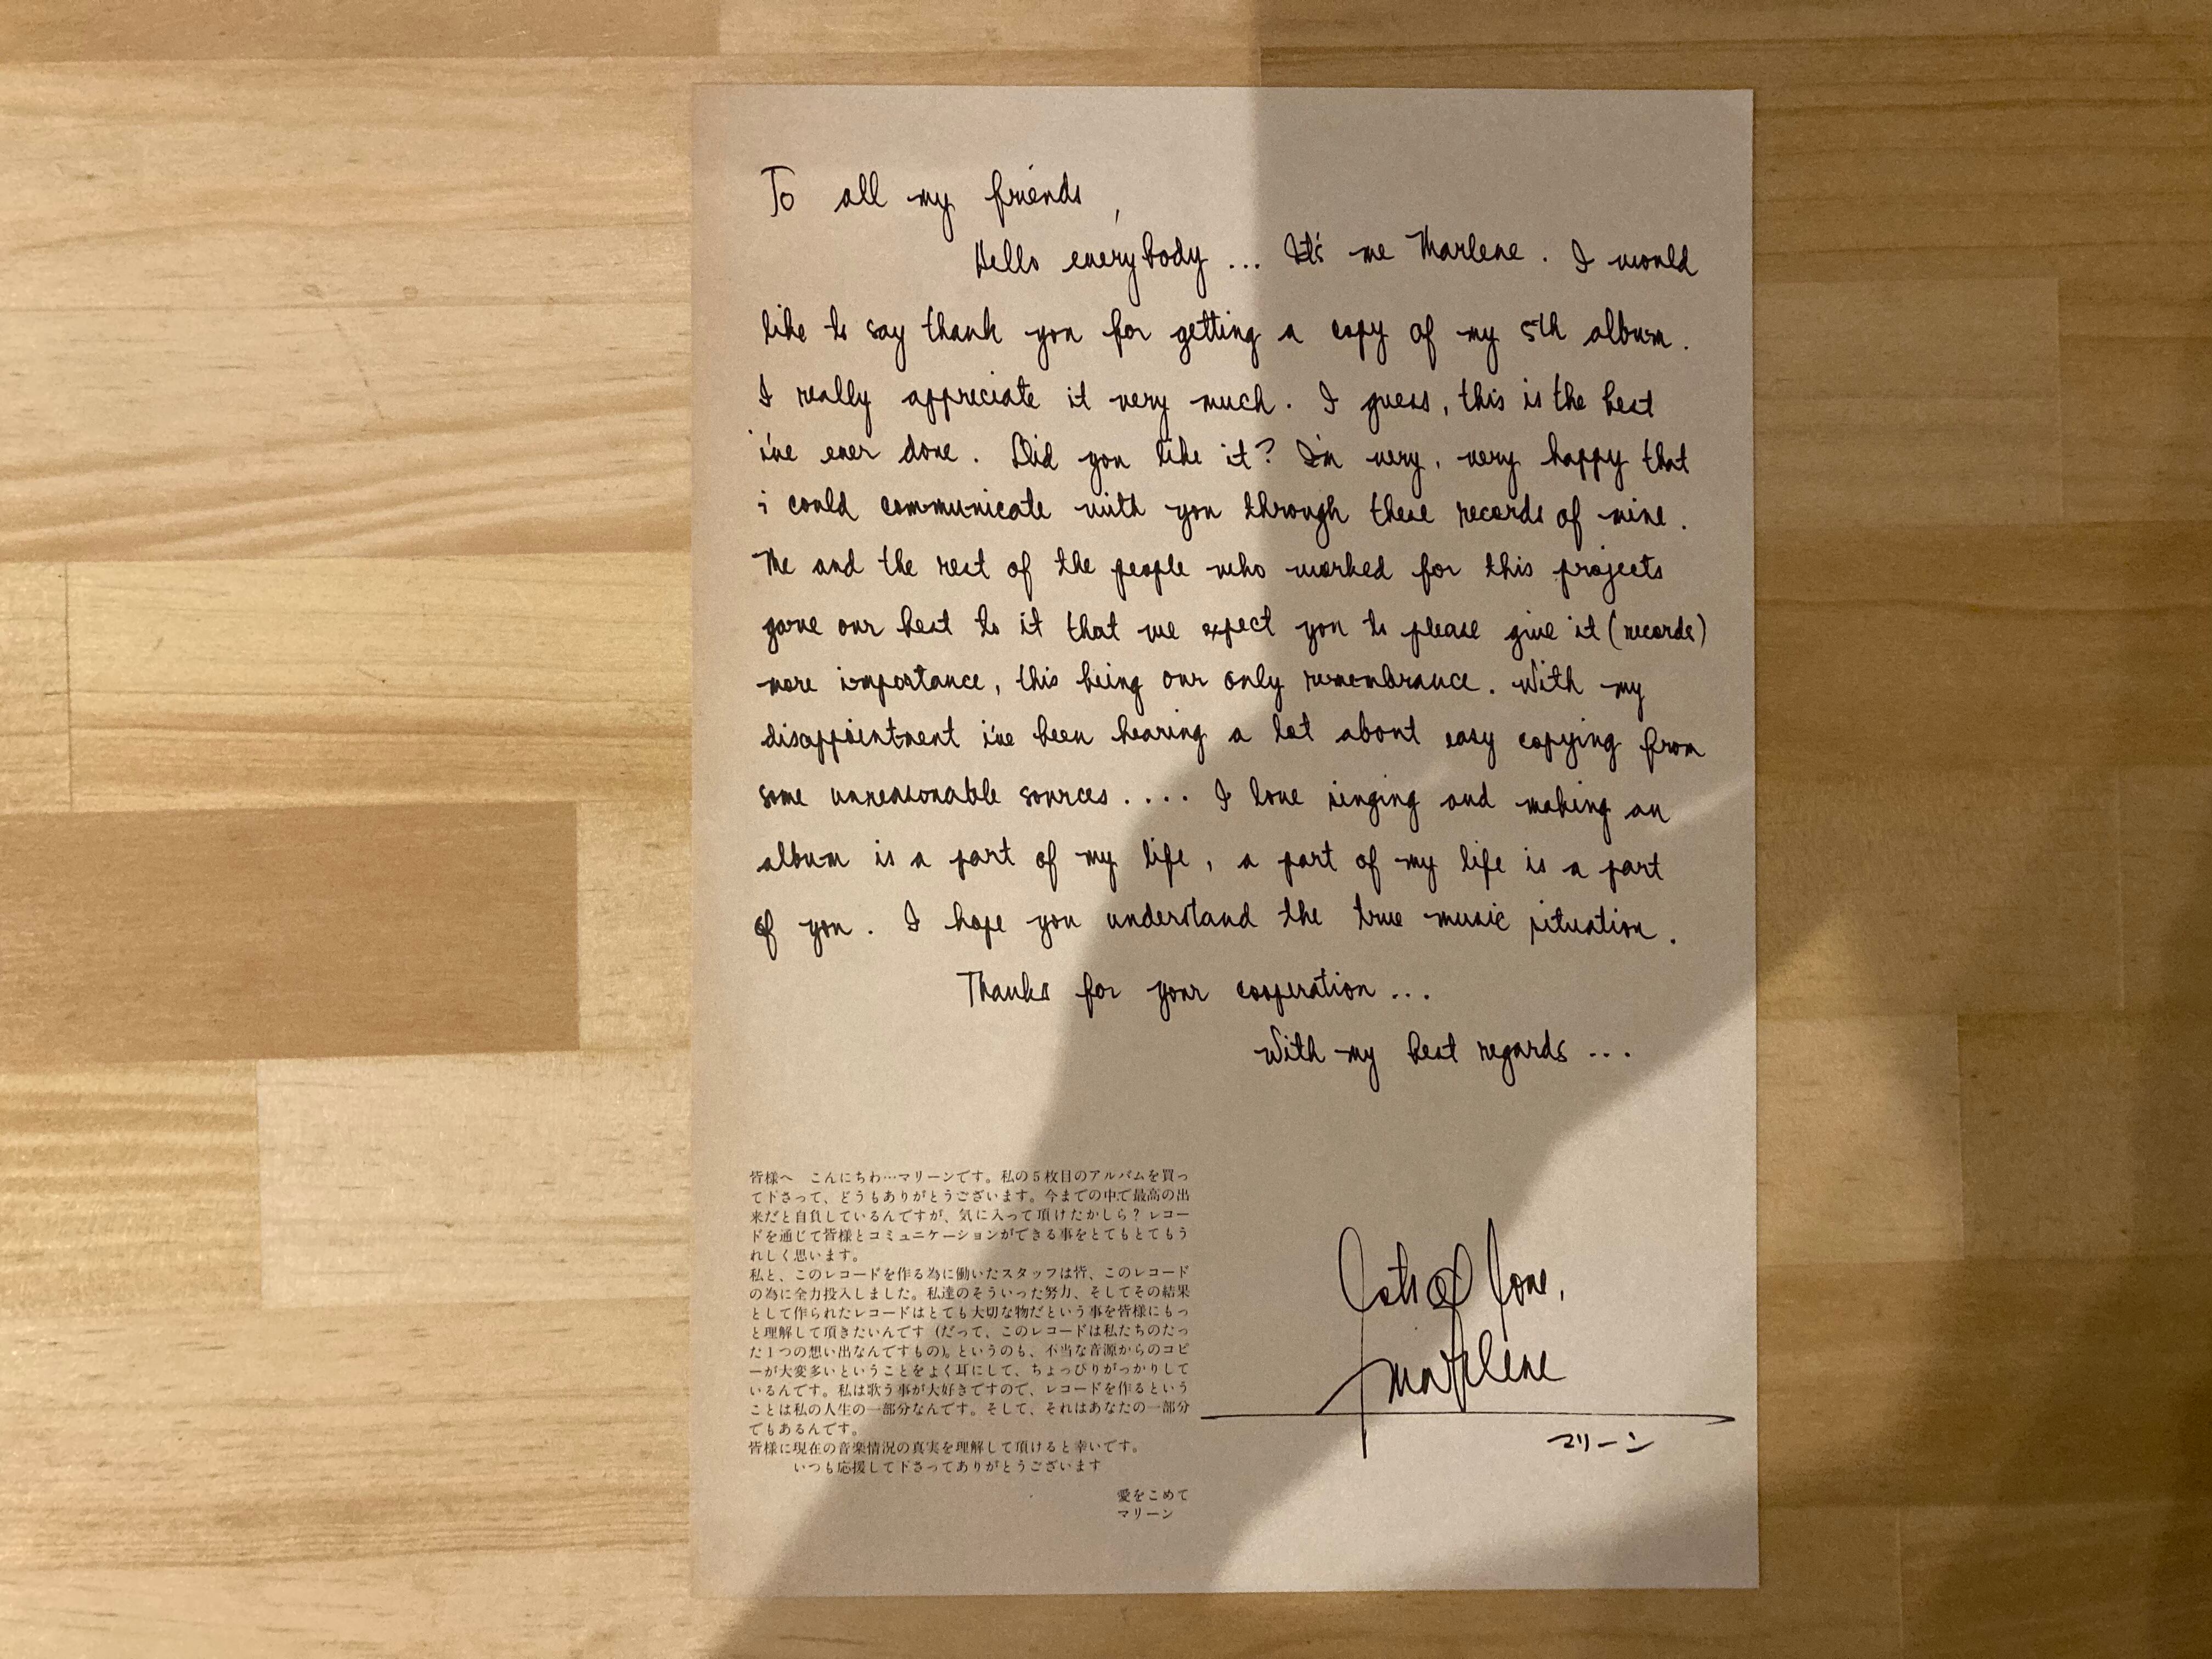 To all my friends,
Hello everybody ... It's me Marlene. I would
like to say thank you for getting a copy of my 5th album.
I really appreciate it very much. I guess, this is the best
i've ever done. Did you like it? I'm very, very happy that
i could communicate with you through these records of mine.
Me and the rest of the people who worked for this projects
gave our best to it that we expect you to please give it (records)
more importance, this being our only remembrance. With my
disappointment i've been hearing a lot about easy copying from
some unreasonable sources.... I love singing and making an
album is a part of my life, a part of my life is a part
of you. I hope you understand the true music situation.
Thanks for your cooperation ...
With my best regards ...
皆様へ　こんにちわ…マリーンです。私の5枚目のアルバムを買っ
て下さって、どうもありがとうございます。今までの中で最高の出
来だと自負しているんですが、気に入って頂けたかしら？レコー
ドを通じて皆様とコミュニケーションができる事をとてもとてもう
れしく思います。
私と、このレコードを作る為に働いたスタッフは皆、このレコード
の為に全力投入しました。私達のそういった努力、そしてその結果
として作られたレコードはとても大切な物だという事を皆様にもっ
と理解して頂きたいんです（だって、このレコードは私たちのたっ
た1つの想い出なんですもの)。というのも、不当な音源からのコピ
ーが大変多いということをよく耳にして、ちょっぴりがっかりして
いるんです。私は歌う事が大好きですので、レコードを作るという
ことは私の人生の一部分なんです。そして、それはあなたの一部分
でもあるんです。
皆様に現在の音楽情況の真実を理解して頂けると幸いです。
いつも応援して下さってありがとうございます
愛をこめて
マリーン
Lots of love,
Marlene
マリーン